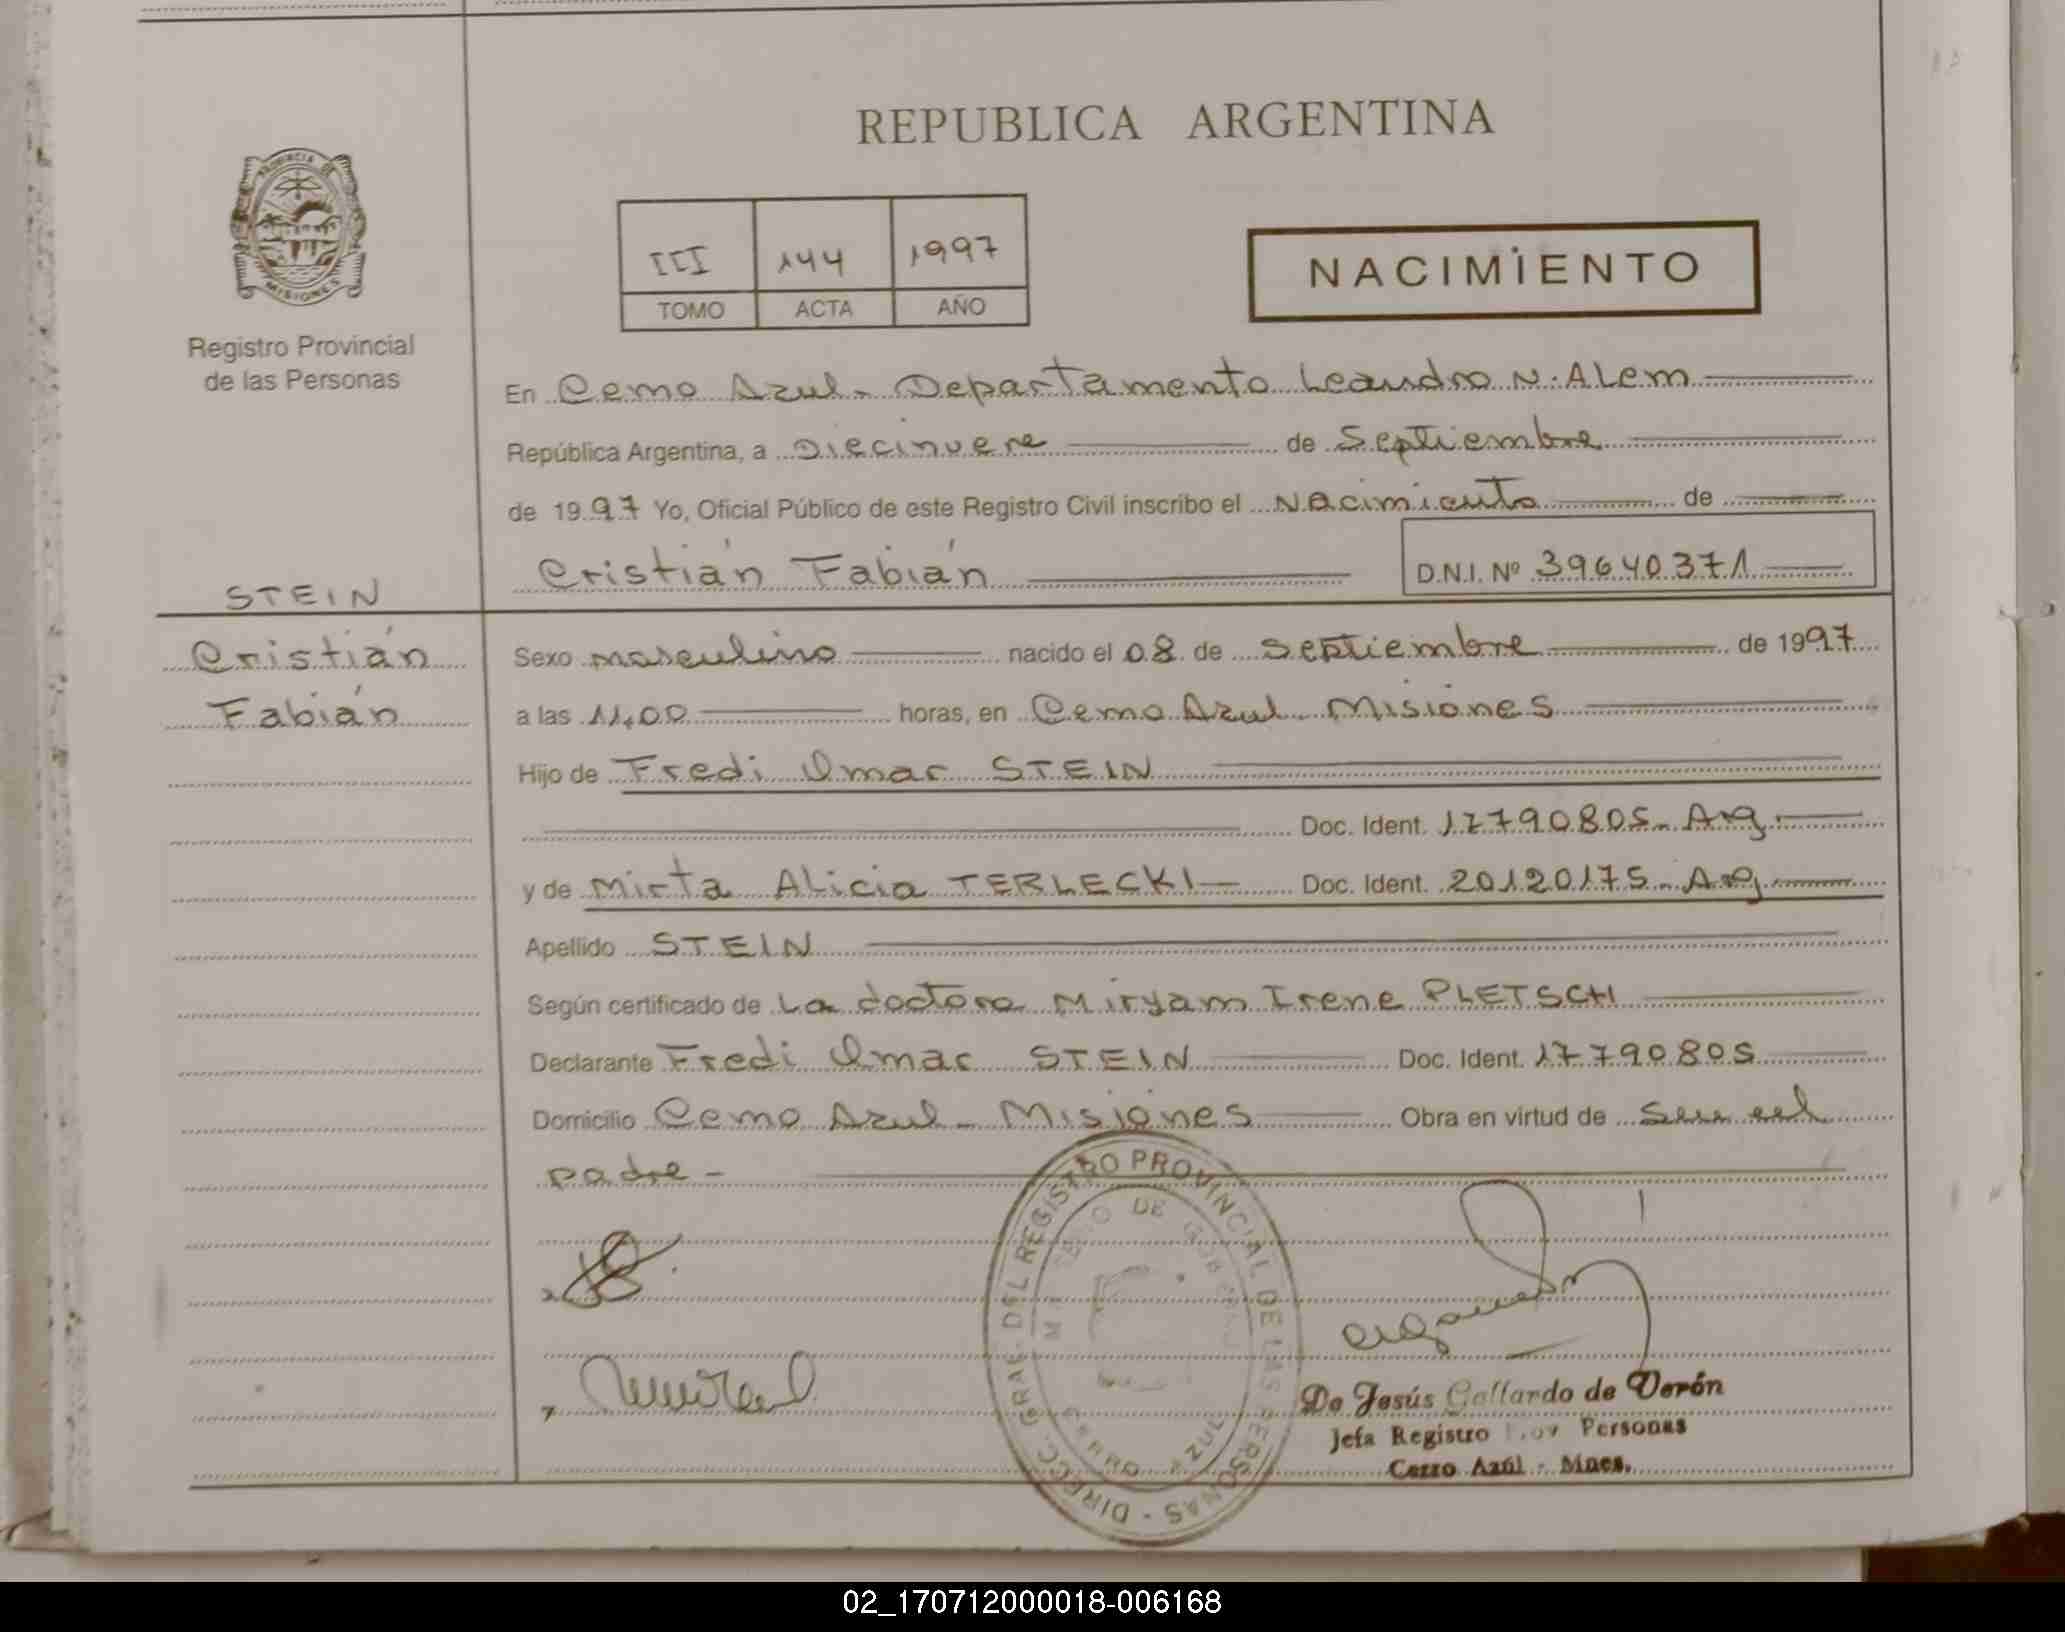 REPUBLICA ARGENTINA
PROVINCIA DE
MISIONES
Registro Provincial
de las Personas
III 144 1997
TOMO ACTA AÑO
NACIMIENTO
En Cerro Azul - Departamento Leandro N. ALem
República Argentina, a Diecinueve de Septiembre
de 1997 Yo, Oficial Público de este Registro Civil inscribo el Nacimiento de
Cristián Fabián D.N.I. Nº 39640371
STEIN
Cristián
Fabián
Sexo masculino nacido el 08 de Septiembre de 1997
a las 11,00 horas, en Cerro Azul - Misiones
Hijo de Fredi Omar STEIN
Doc. Ident. 17790805 - Arg.
y de Mirta Alicia TERLECKI - Doc. Ident. 20120175 - Arg.
Apellido STEIN
Según certificado de La doctora Miryam Irene PLETSCH
Declarante Fredi Omar STEIN Doc. Ident. 17790805
Domicilio Cerro Azul - Misiones Obra en virtud de Ser el
padre -
DIRECC. GRAL. DEL REGISTRO PROVINCIAL DE LAS PERSONAS -
DE
CERRO AZUL
De Jesús Gallardo de Verón
Jefa Registro Prov Personas
Cerro Azúl - Mnes.
02_170712000018-006168